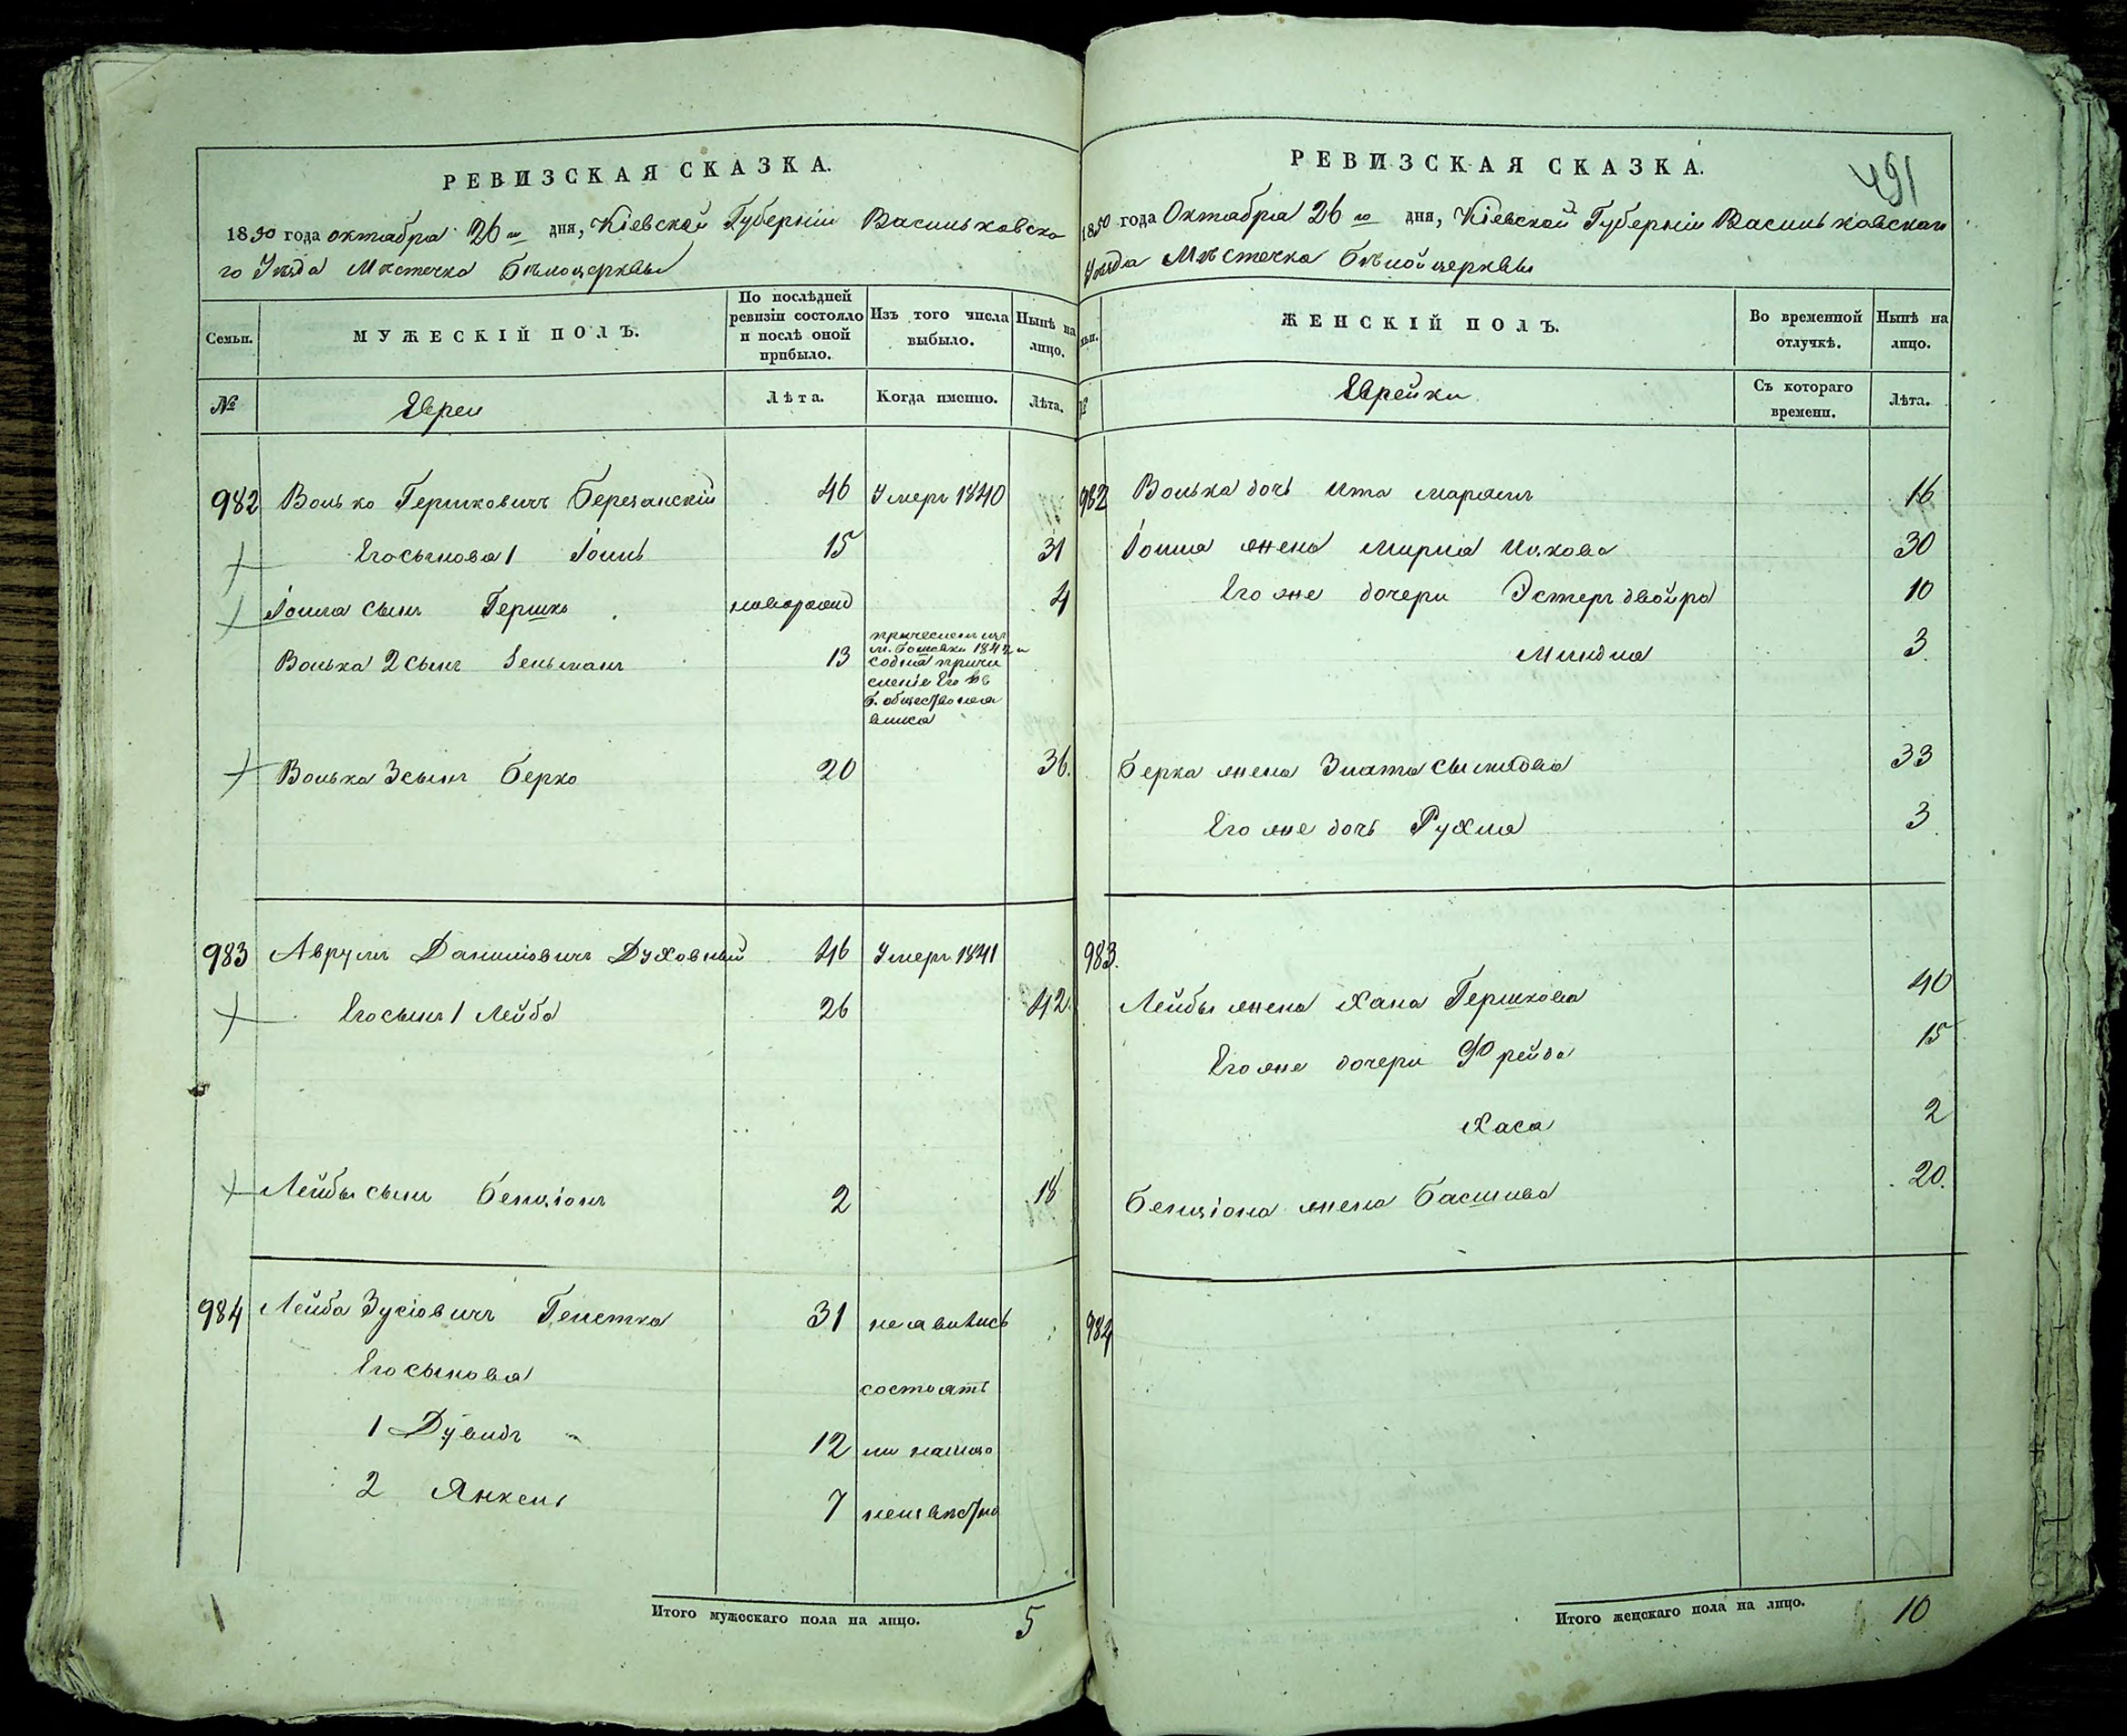 РЕВИЗСКАЯ СКАЗКА.
1850 года октября 26 го дня, Кіевской Губерніи Васильковско
го Уѣзда Мѣстечка Бѣлоцерквы
Семьи.
МУЖЕСКІЙ ПОЛЪ.
По послѣдней ревизіи состояло и послѣ оной прибыло.
Изъ того числа выбыло.
Нынѣ на лицо.
№
Евреи
Лѣта.
Когда именно.
Лѣта.
982 Волько Гершковичъ Березанскій 46 Умеръ 1840
Его сыновья 1 Іошь 15 31
Іошя сынъ Гершко новорожд 4
Волька 2 сынъ Зельманъ 13
причисленъ изъ
м. 1842
содна причи
сленіе Его въ
Б. общество не я
вился
Волька 3 сынъ Берко 20 36.
983 Аврумъ Даниловичъ Духовный 46 Умеръ 1841
Его сынъ 1 Лейба 26 42.
Лейбы сынъ Бенціонъ 2 18
984 Лейба Зусіовичъ Гепетка 31 не явились
Его сыновья состоятъ
1 Дувидъ 12 ли на лицо
2 Янкель 7 неизвѣстно
Итого мужескаго пола на лицо. 5
РЕВИЗСКАЯ СКАЗКА.
491
1850 года Октября 26 го дня, Кіевской Губерніи Васильковскаго
Уѣзда Мѣстечка Бѣлой церквы
ЖЕНСКІЙ ПОЛЪ.
Во временной отлучкѣ.
Нынѣ на лицо.
№
Еврейки
Съ котораго времени.
Лѣта.
982 Волька дочь Ита Маріямъ 16
Іошя жена Мирля Ицкова 30
Его же дочери Эстеръ Двойра 10
Миндля 3.
Берка жена Злата 33
Его же дочь Рухля 3
983.
Лейбы жена Хана Гершкова 40
Его же дочери Фрейда 15
Хася 2
Бенціона жена Басшива 20.
984
Итого женскаго пола на лицо. 10